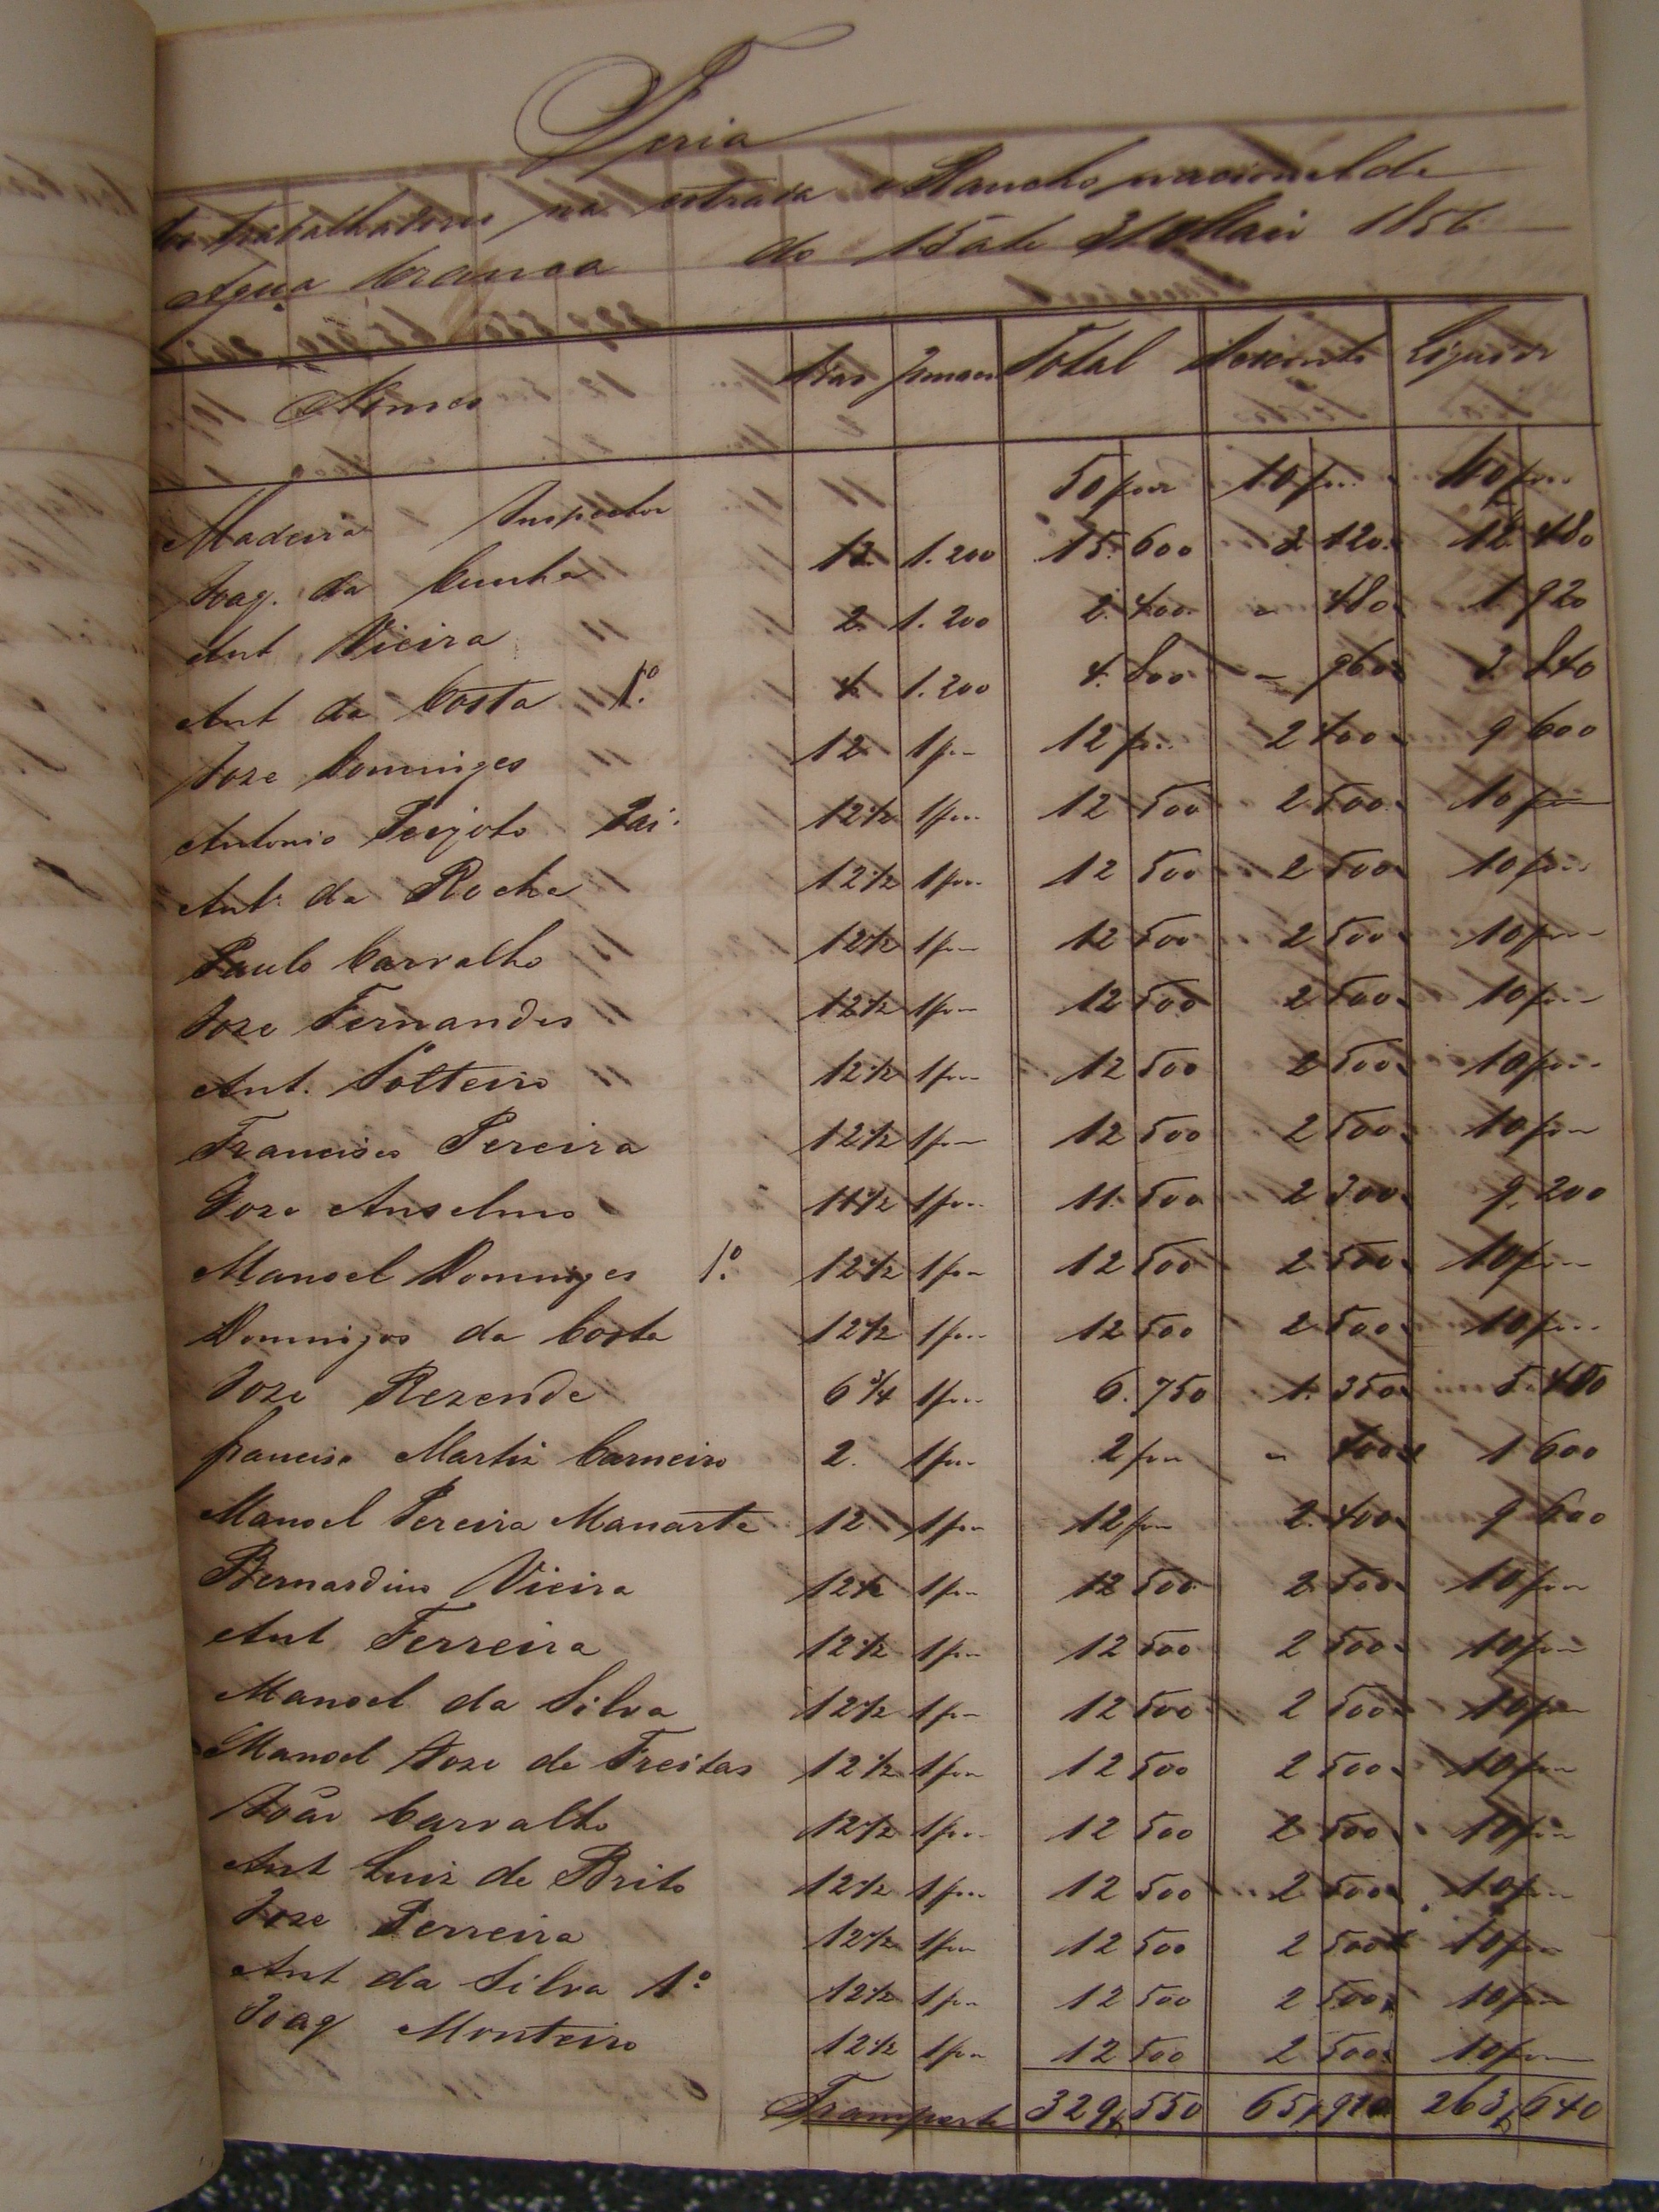 Feria
dos trabalhadores na estrada e Rancho nacional de
Agua branca do 15 ate 31 Maio 1856
Nomes Dias Total Desconto Liquido
Madeira Inspector " 50 10 40
Joaq. da Cunha " 13 1.200 15.600 3 120 12 480
Ant Vieira " 2 1.200 2.400 - 480 1 920
Ant da Costa 1º 4 1.200 4.800 - 960 3 840
Joze Dominges " 12 1 12 2 400 9 600
Antonio Peixoto Pai. 12 1/2 1 12 500 2 500 10
Antº da Rocha " 12 1/2 1 12 500 2 500 10
Paulo Carvalho " 12 1/2 1 12 500 2 500 10
Joze Fernandes " 12 1/2 1 12 500 2 500 10
Ant. Solteiro " 12 1/2 1 12 500 2 500 10
Francisco Pereira 12 1/2 1 12 500 2 500 10
Joze Anselmo 11 1/2 1 11.500 2 300 9.200
Manoel Dominges 1º 12 1/2 1 12 500 2 500 10
Domingos da Costa 12 1/2 1 12 500 2 500 10
Joze Rezende 6 3/4 1 6.750 1.350 5.400
francisco Martis Carneiro 2. 1 2 - 400 1 600
Manoel Pereira Manarte 12 1 12 2.400 9 600
Bernardino Vieira 12 1/2 1 12 500 2 500 10
Ant Ferreira 12 1/2 1 12 500 2 500 10
Manoel da Silva 12 1/2 1 12 500 2 500 10
Manoel Joze de Freitas 12 1/2 1 12 500 2 500 10
João Carvalho 12 1/2 1 12 500 2 500 10
Ant Luiz de Brito 12 1/2 1 12 500 2 500 10
Joze Ferreira 12 1/2 1 12 500 2 500 10
Ant da Silva 1º 12 1/2 1 12 500 2 500 10
Joaq Monteiro 12 1/2 1 12 500 2 500 10
Transporte 329$550 65$910 263$640